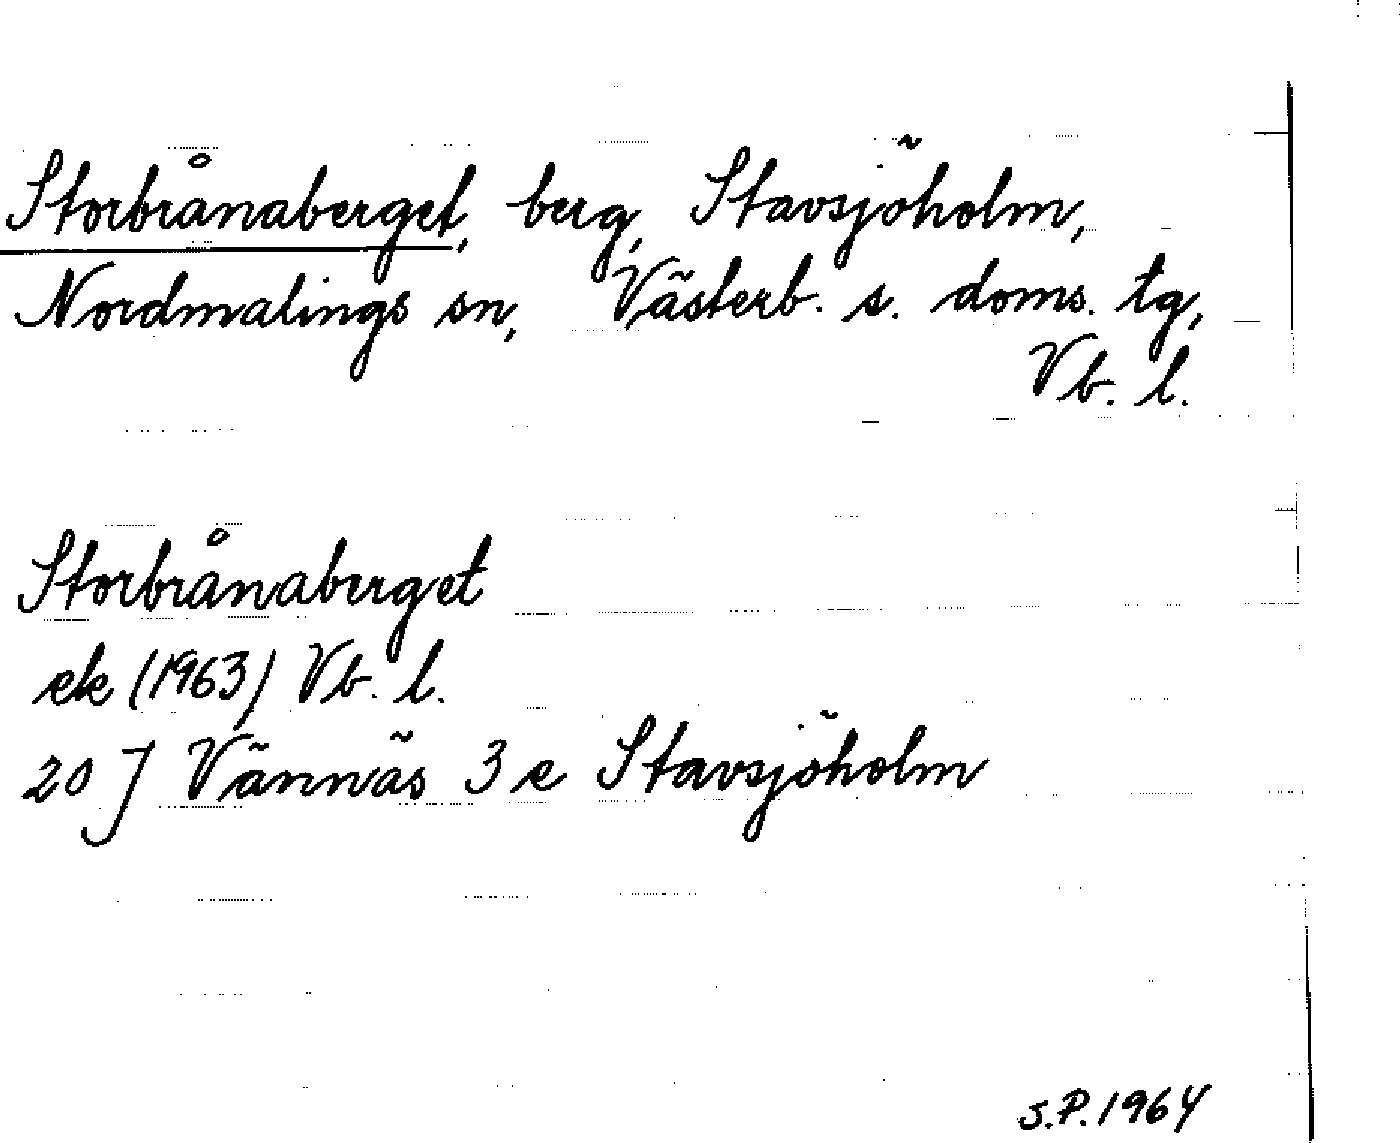 Storbrånaberget, berg, Stavsjöholm,
Nordmalings sn, Västerb. s. doms. tg,
Vb. l.
Storbrånaberget
ek (1963) Vb. l.
20 J Vännäs 3 e Stavsjöholm
S.P. 1964